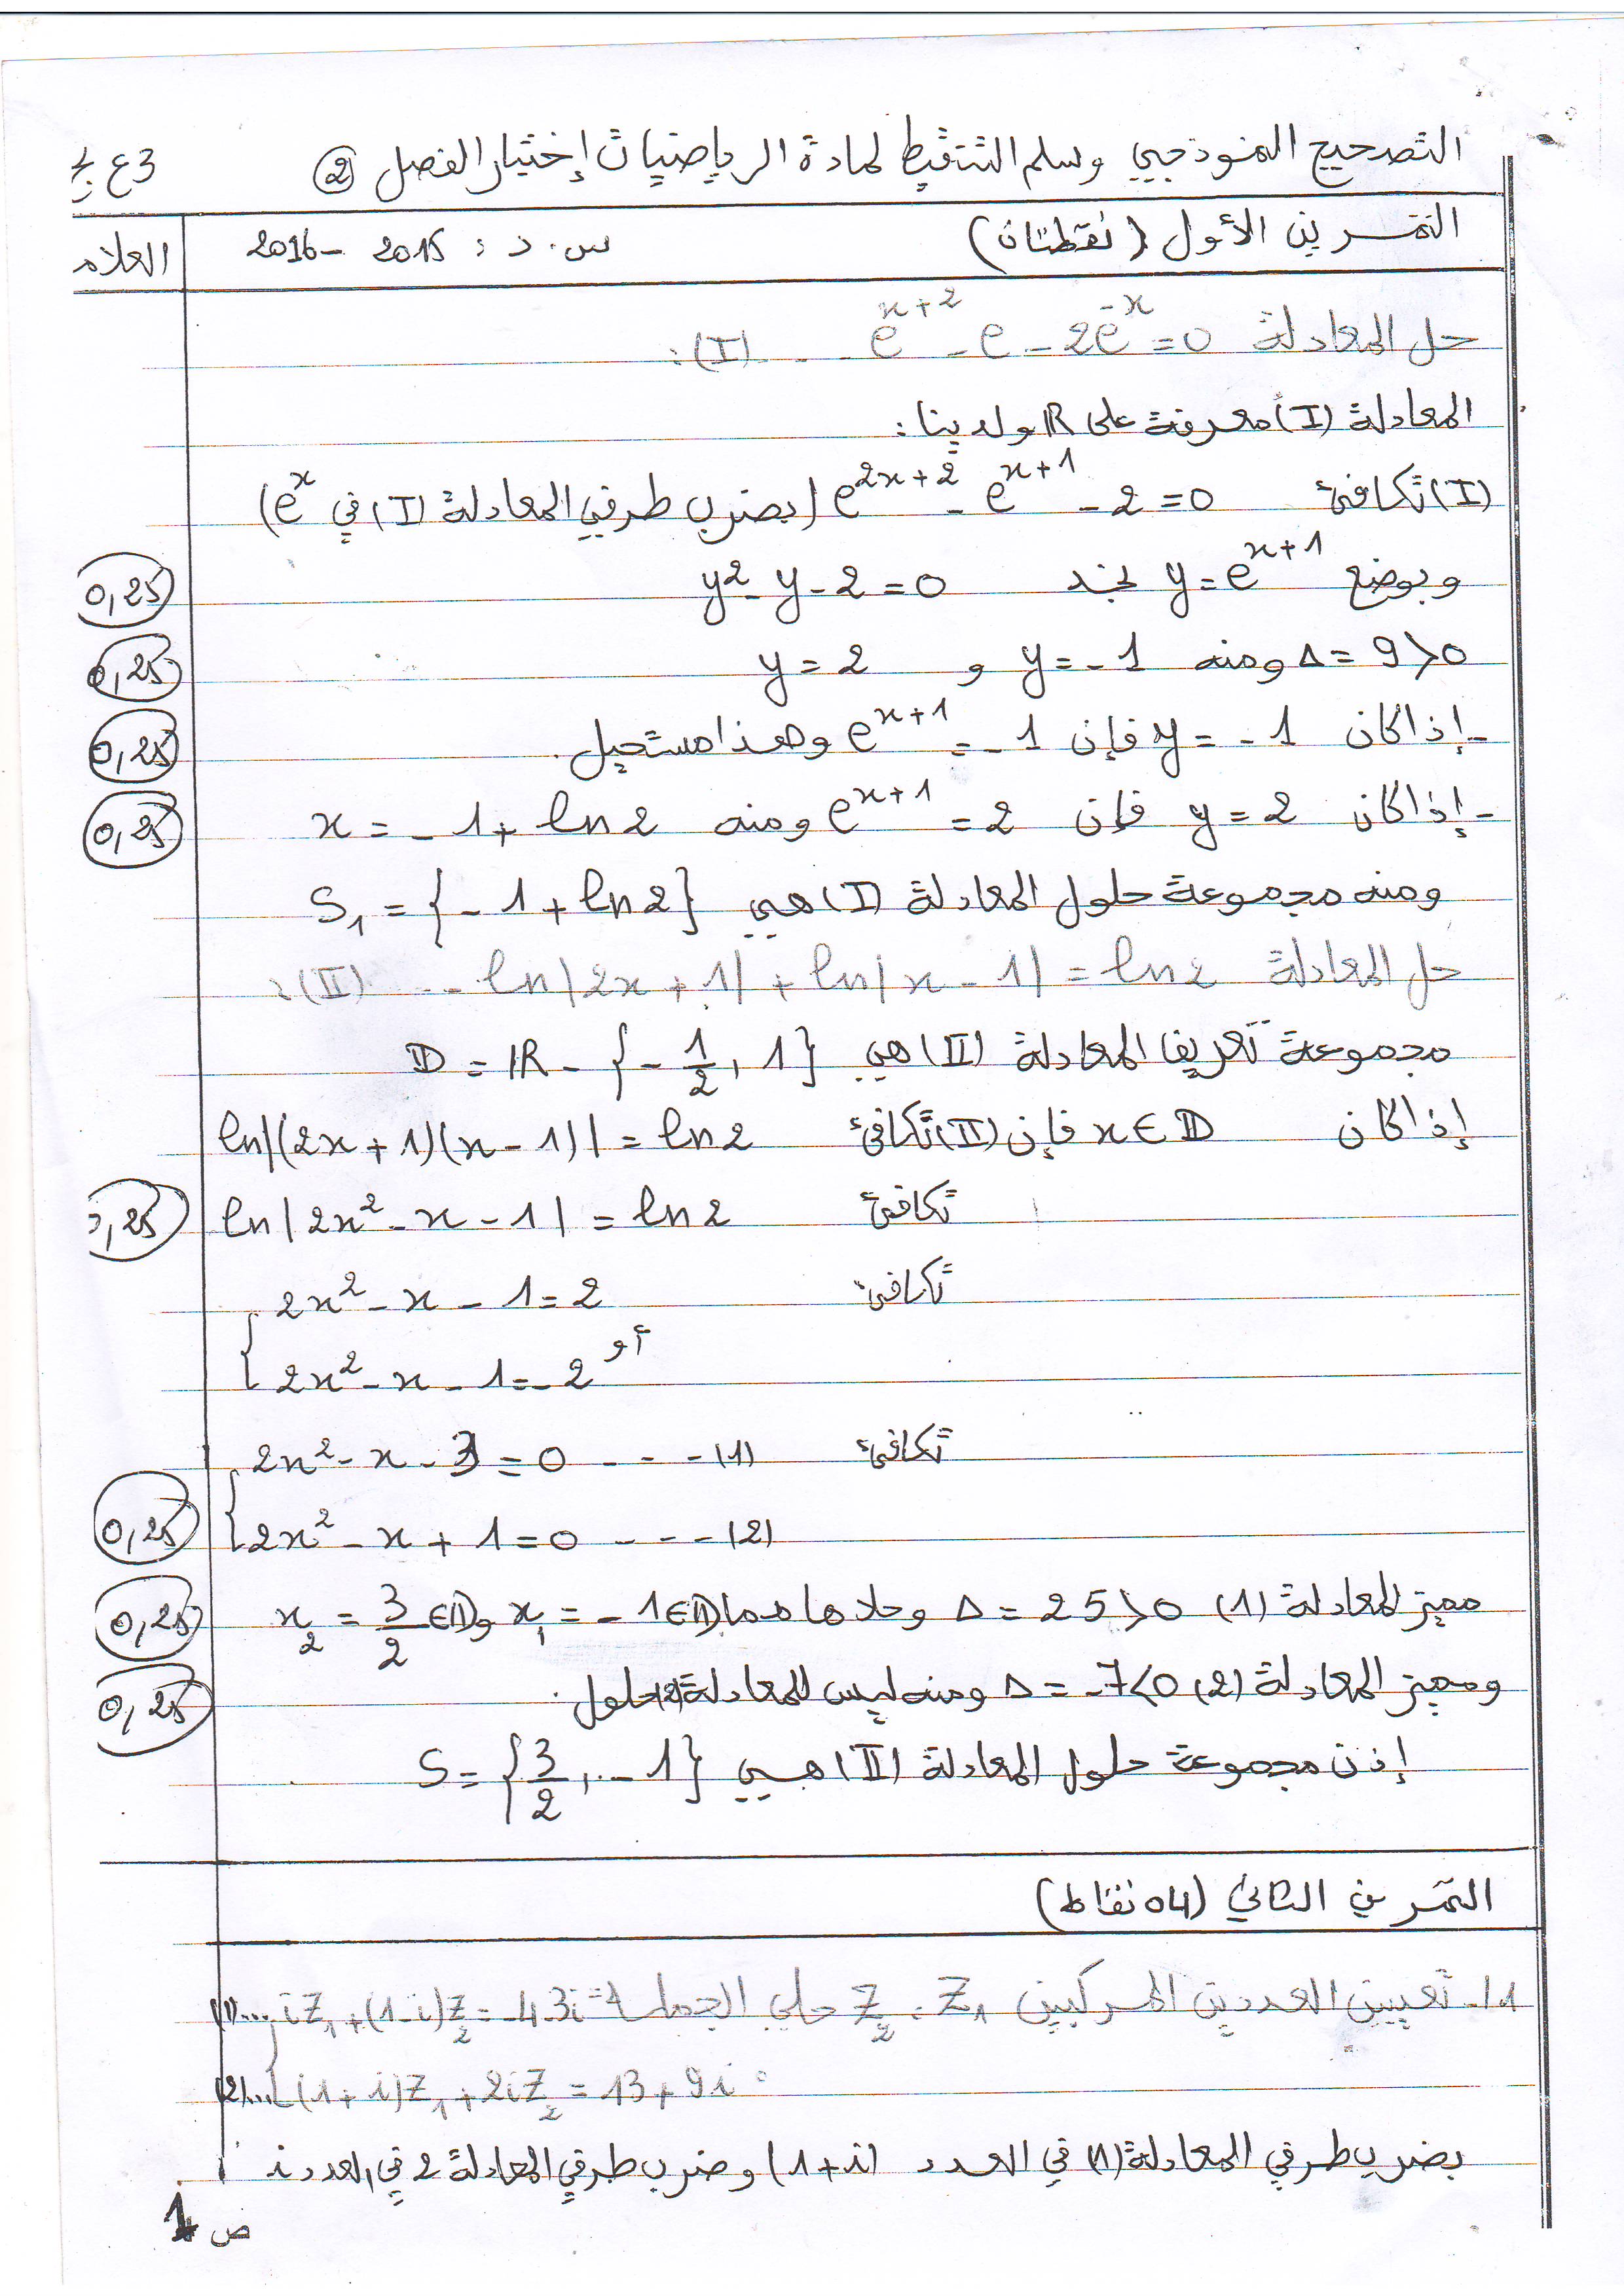 التصحيح النموذجي وسلم التنقيط لمادة الرياضيات إختبار الفصل ② 3ع ج
التمرين الأول (نقطتان) س. د : 2015 - 2016 العلامة
حل المعادلة e^{x+2} - e - 2e^{-x} = 0 ... (I) :
المعادلة (I) معرفة على ℝ ولدينا :
(I) تكافئ e^{2x+2} - e^{x+1} - 2 = 0 (بضرب طرفي المعادلة (I) في e^x)
وبوضع y = e^{x+1} نجد y² - y - 2 = 0 0,25
Δ = 9 > 0 ومنه y = -1 و y = 2 0,25
- إذا كان y = -1 فإن e^{x+1} = -1 وهذا مستحيل . 0,25
- إذا كان y = 2 فإن e^{x+1} = 2 ومنه x = -1 + ln 2 0,25
ومنه مجموعة حلول المعادلة (I) هي S₁ = {-1 + ln 2}
حل المعادلة ln|2x + 1| + ln|x - 1| = ln 2 ... (II) :
مجموعة تعريف المعادلة (II) هي D = ℝ - {-1/2 , 1}
إذا كان x ∈ D فإن (II) تكافئ ln|(2x + 1)(x - 1)| = ln 2
تكافئ ln|2x² - x - 1| = ln 2 0,25
تكافئ { 2x² - x - 1 = 2
أو
2x² - x - 1 = -2
تكافئ { 2x² - x - 3 = 0 ---- (1)
2x² - x + 1 = 0 ---- (2) 0,25
مميز المعادلة (1) Δ = 25 > 0 وحلاها هما x₁ = -1 ∈ D و x₂ = 3/2 ∈ D 0,25
ومميز المعادلة (2) Δ = -7 < 0 ومنه ليس للمعادلة (2) حلول . 0,25
إذن مجموعة حلول المعادلة (II) هي S = {3/2 , -1}
التمرين الثاني (04 نقاط)
1.1- تعيين العددين المركبين Z₁ ، Z₂ حلي الجملة { iZ₁ + (1-i)Z₂ = -4-3i ...(1)
(1+i)Z₁ + 2iZ₂ = 13 + 9i ...(2) :
بضرب طرفي المعادلة (1) في العدد (1+i) وضرب طرفي المعادلة 2 في العدد i
ص 1